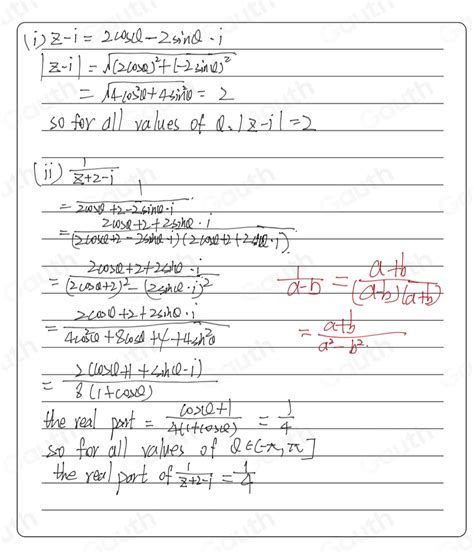 (i) z-i = 2cosθ-2sinθ·i
|z-i| = √((2cosθ)²+(-2sinθ)²)
= √(4cos²θ+4sin²θ) = 2
so for all values of θ, |z-i|=2
(ii) 1/(z+2-i)
= 1/(2cosθ+2-2sinθ·i)
= (2cosθ+2+2sinθ·i)/((2cosθ+2-2sinθ·i)(2cosθ+2+2sinθ·i))
= (2cosθ+2+2sinθ·i)/((2cosθ+2)²-(2sinθ·i)²)
1/(a-b) = (a+b)/((a-b)(a+b))
= (2cosθ+2+2sinθ·i)/(4cos²θ+8cosθ+4+4sin²θ)
= (a+b)/(a²-b²)
= 2(cosθ+1+sinθ·i)/(8(1+cosθ))
the real part = (cosθ+1)/(4(1+cosθ)) = 1/4
so for all values of θ∈(-π,π]
the real part of 1/(z+2-i) = 1/4